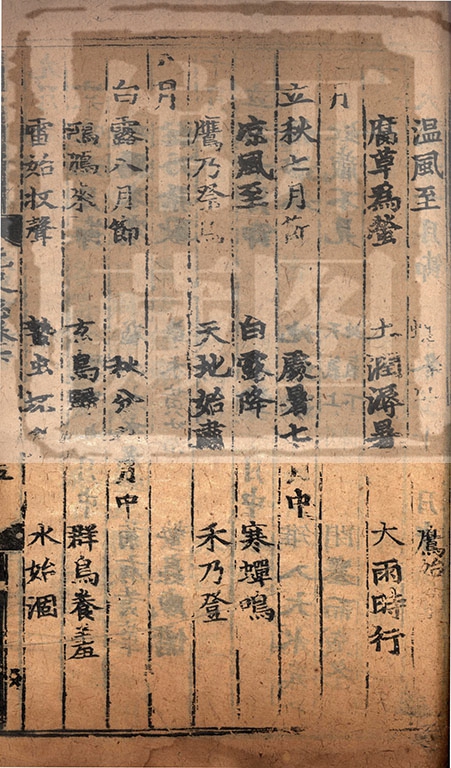 温風至 鷹始
腐草爲螢 土潤溽暑 大雨時行
月
立秋七月節 處暑七月中
凉風至 白露降 寒蟬鳴
鷹乃祭鳥 天地始肅 禾乃登
八月
白露八月節 秋分八月中
鴻鴈來 玄鳥歸 群鳥養羞
雷始收聲 蟄虫 水始涸